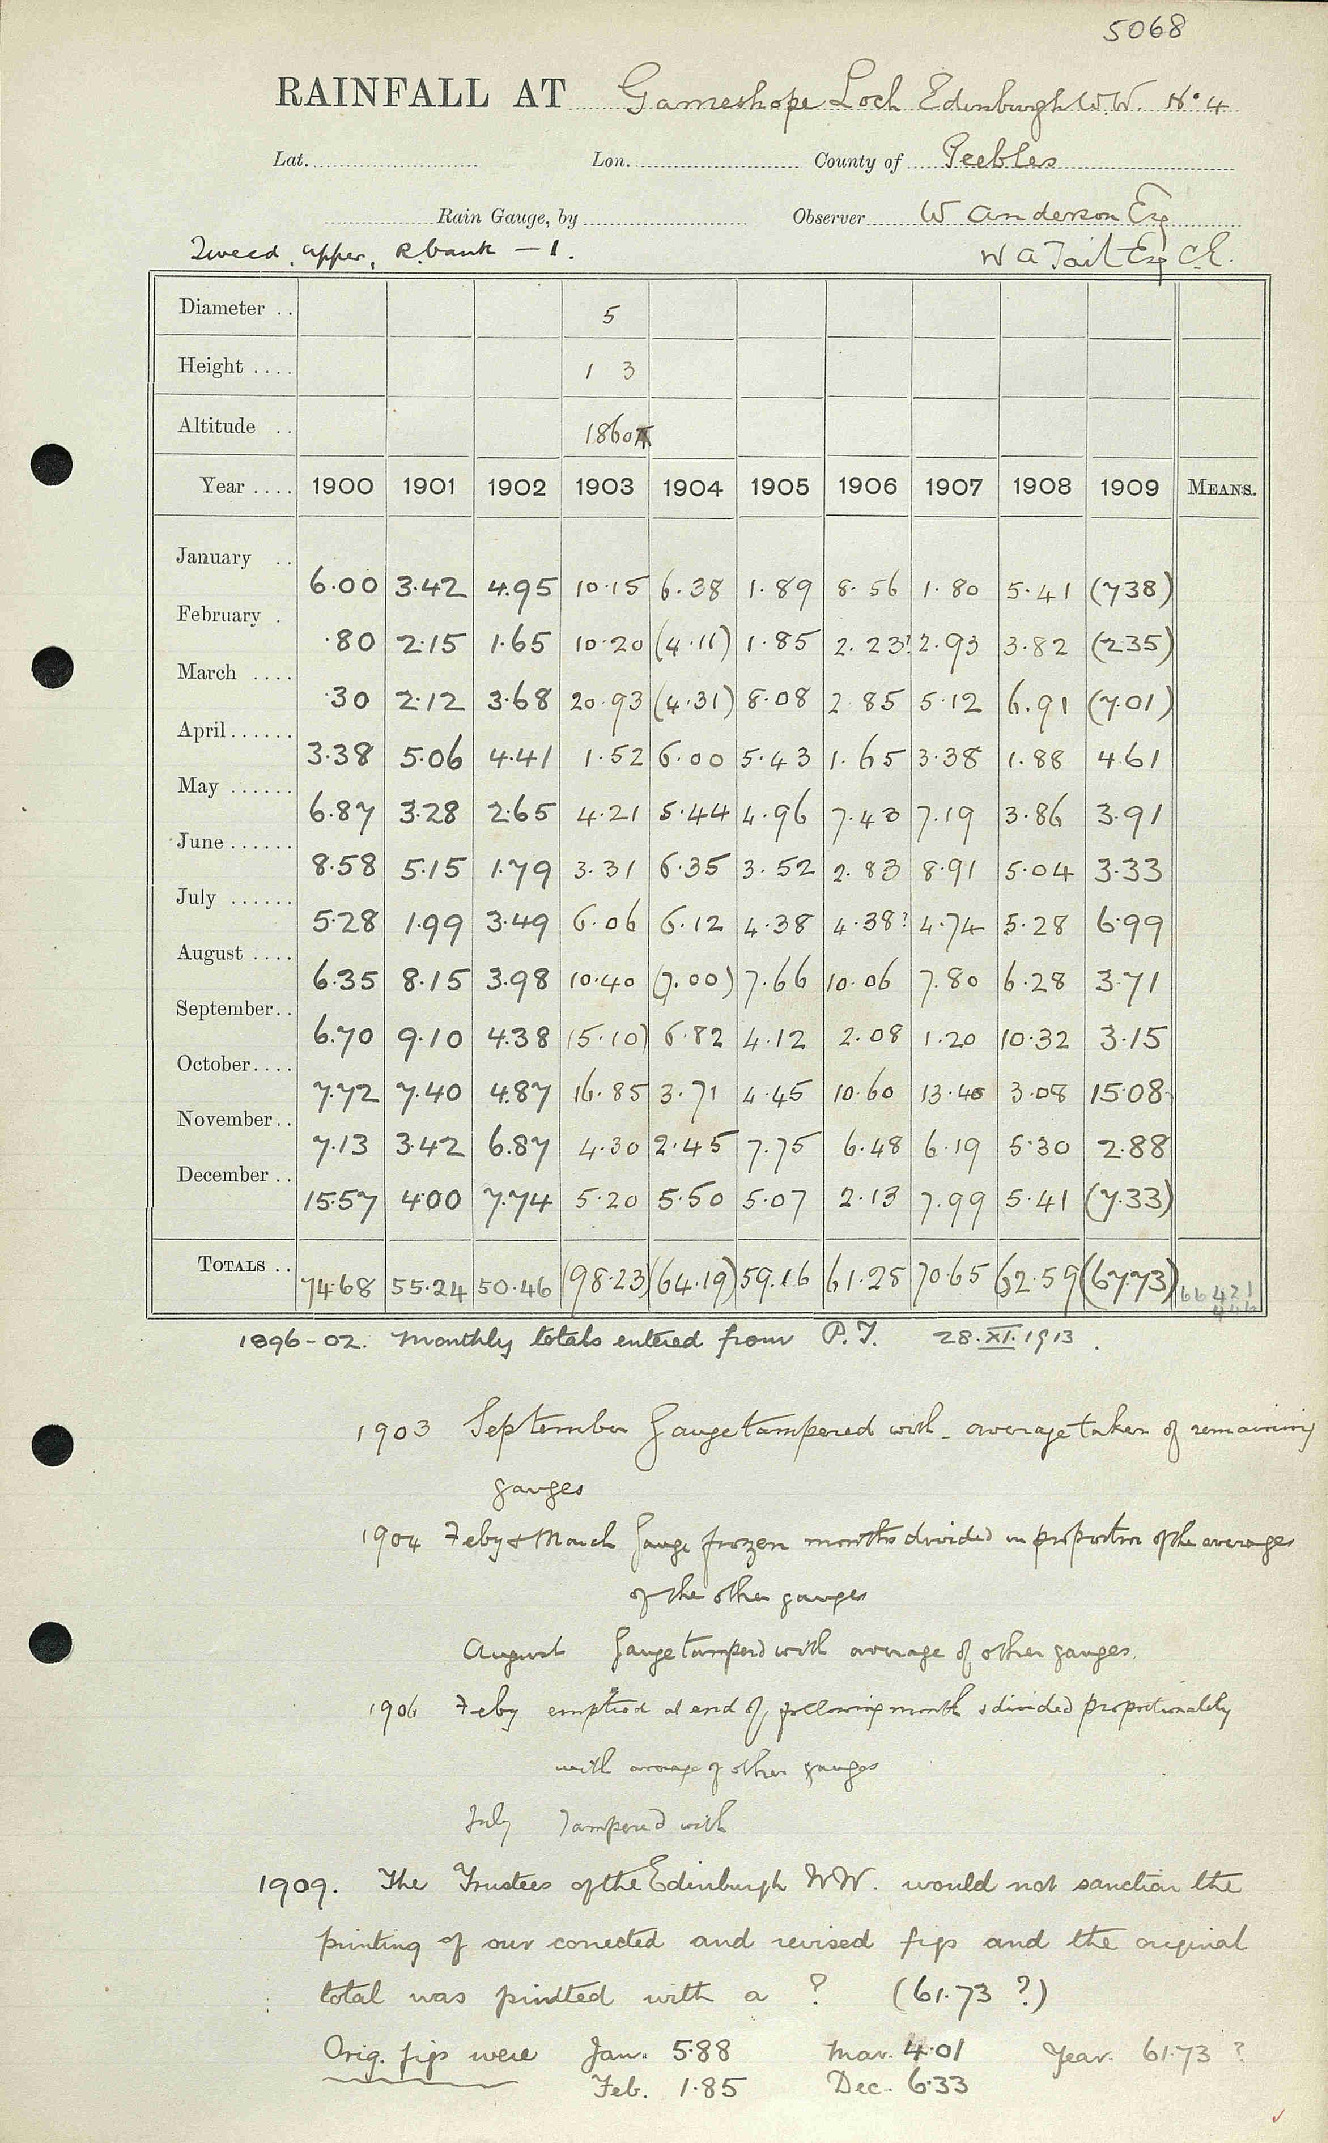 5068
RAINFALL AT Gameshope Loch Edinburgh W.W. No 4
Lat. Lon. County of Peebles
Rain Gauge, by Observer W Anderson Esq
Tweed, Upper, R. bank - 1. W A Tait Esq C.E.
Diameter .. 5
Height .... 1 3
Altitude .. 1860
Year .... 1900 1901 1902 1903 1904 1905 1906 1907 1908 1909 MEANS.
January .. 6.00 3.42 4.95 10.15 6.38 1.89 8.56 1.80 5.41 (7.38)
February . .80 2.15 1.65 10.20 (4.11) 1.85 2.23? 2.93 3.82 (2.35)
March .... .30 2.12 3.68 20.93 (4.31) 8.08 2.85 5.12 6.91 (7.01)
April...... 3.38 5.06 4.41 1.52 6.00 5.43 1.65 3.38 1.88 4.61
May ...... 6.87 3.28 2.65 4.21 5.44 4.96 7.40 7.19 3.86 3.91
June...... 8.58 5.15 1.79 3.31 6.35 3.52 2.83 8.91 5.04 3.33
July ...... 5.28 1.99 3.49 6.06 6.12 4.38 4.38? 4.74 5.28 6.99
August .... 6.35 8.15 3.98 10.40 (7.00) 7.66 10.06 7.80 6.28 3.71
September.. 6.70 9.10 4.38 (5.10) 6.82 4.12 2.08 1.20 10.32 3.15
October.... 7.72 7.40 4.87 16.85 3.71 4.45 10.60 13.40 3.08 15.08
November.. 7.13 3.42 6.87 4.30 2.45 7.75 6.48 6.19 5.30 2.88
December .. 15.57 4.00 7.74 5.20 5.50 5.07 2.13 7.99 5.41 (7.33)
TOTALS .. 74.68 55.24 50.46 (98.23) (64.19) 59.16 61.25 70.65 62.59 (67.73) 66421
1896-02. Monthly totals entered from P.T. 28.XI.1913.
1903 September Gauge tampered with - average taken of remaining
gauges
1904 Feby & March Gauge frozen months divided in proportion of the averages
of the other gauges
August Gauge tampered with average of other gauges.
1906 Feby emptied at end of following month & divided proportionately
with average of other gauges
July Tampered with
1909. The Trustees of the Edinburgh W.W. would not sanction the
printing of our corrected and revised figs and the original
total was printed with a ? (61.73 ?)
Orig. figs were Jan. 5.88 Mar. 4.01 Year. 61.73 ?
Feb. 1.85 Dec. 6.33